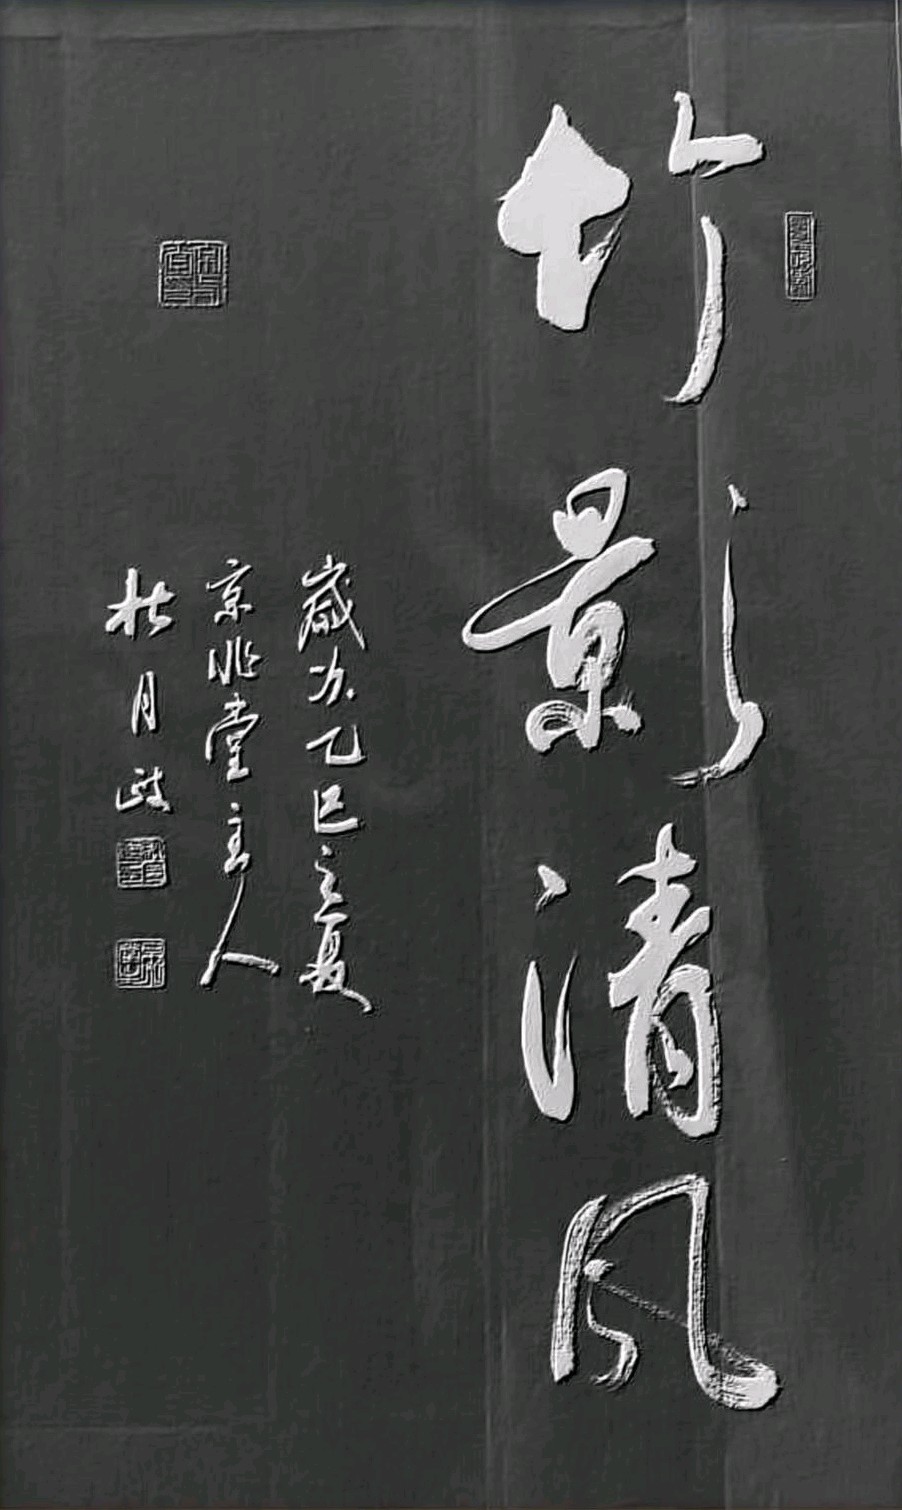 竹影清风
岁次乙巳之夏
京兆堂主人
杜月政